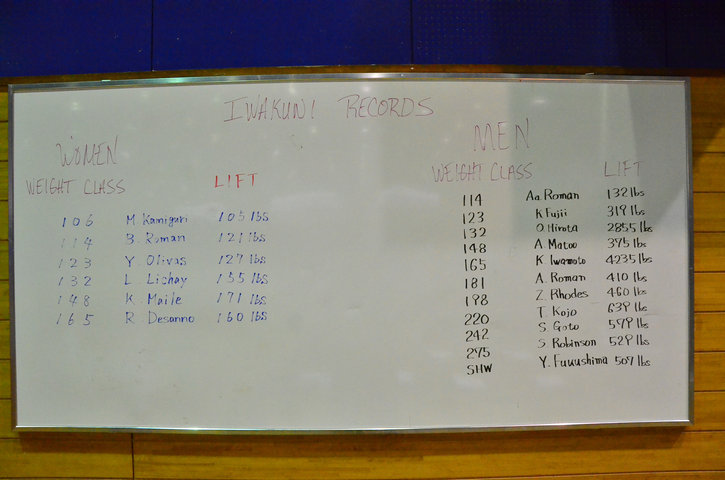 IWAKUNI RECORDS
WOMEN
WEIGHT CLASS LIFT
106 M Kamiguri 105 lbs
114 B. Roman 121 lbs
123 Y Olivas 127 lbs
132 L. Lichay 155 lbs
148 K. Maile 171 lbs
165 R Desanno 160 lbs
MEN
WEIGHT CLASS LIFT
114 Aa Roman 132 lbs
123 K Fujii 319 lbs
132 O Hirota 2855 lbs
148 A Matoo 395 lbs
165 K Iwamoto 4235 lbs
181 A. Roman 410 lbs
198 Z. Rhodes 460 lbs
220 T. Kojo 639 lbs
242 S Goto 579 lbs
275 S Robinson 529 lbs
SHW Y. Fukushima 507 lbs